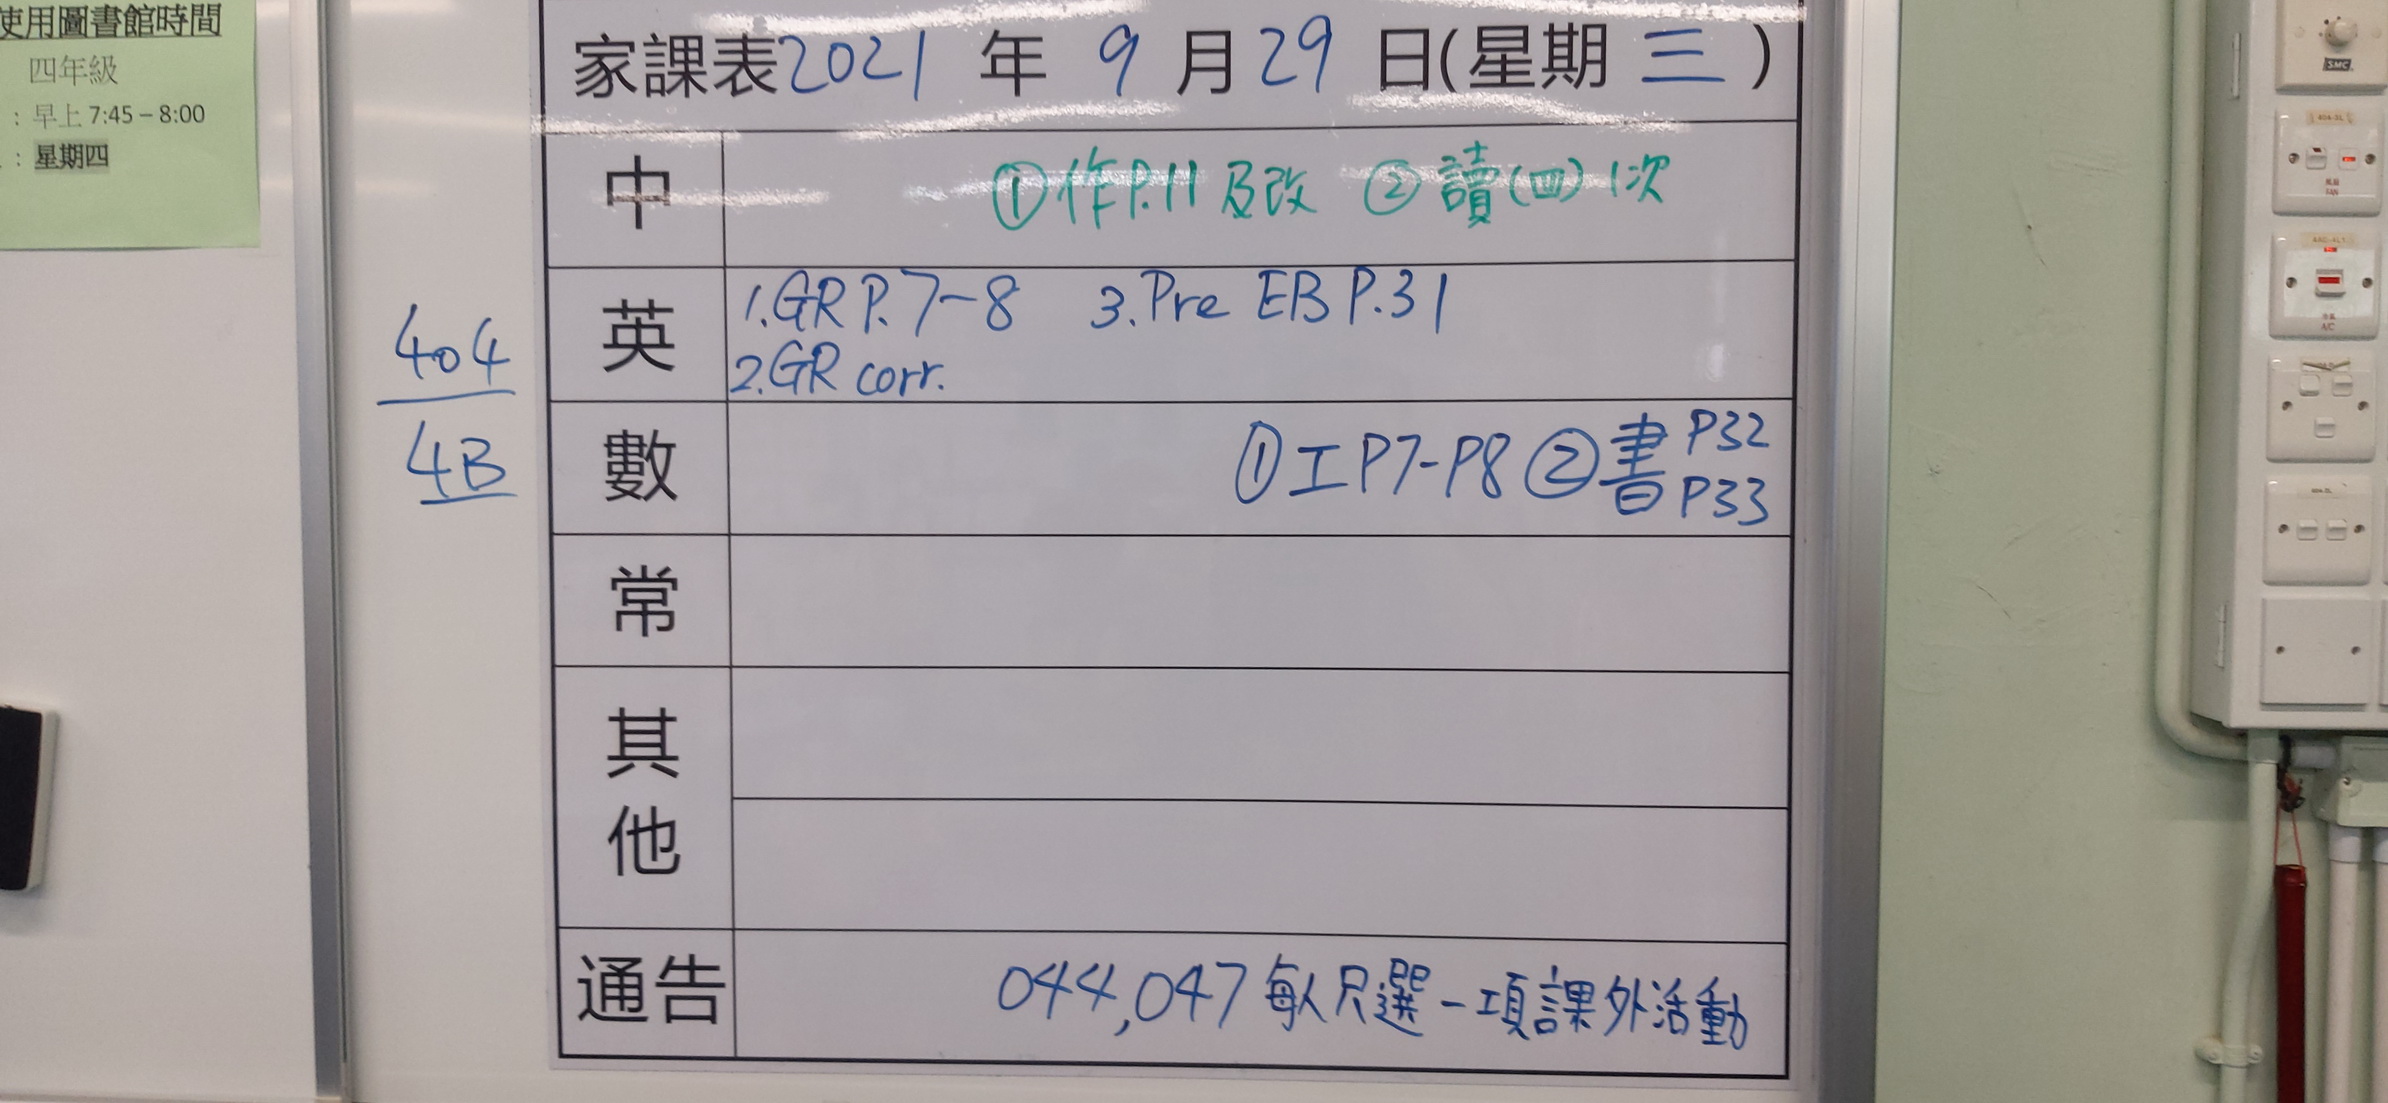 使用圖書館時間
四年級
：早上 7:45 – 8:00
：星期四
家課表2021 年 9 月 29 日(星期 三 )
中 ①作P.11 及改 ②讀(四)1次
404
4B
英 1.GR P.7-8 3.Pre EB P.31
2.GR corr.
數 ①工P7-P8 ②書 P32
P33
常
其他
通告 044,047 每人只選一項課外活動
SMC
FAN
A/C